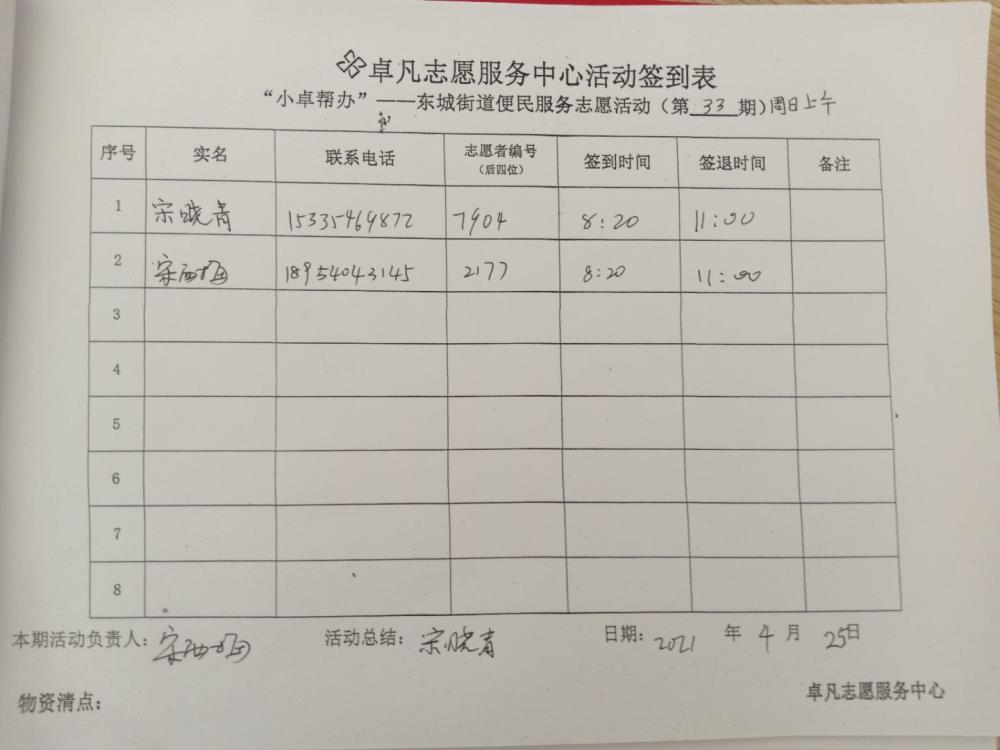 卓凡志愿服务中心活动签到表
“小卓帮办”——东城街道便民服务志愿活动（第 33 期）周日上午
序号 实名 联系电话 志愿者编号（后四位） 签到时间 签退时间 备注
1 宋晓青 15335469872 7904 8:20 11:00
2 宋西梅 18954043145 2177 8:20 11:00
3
4
5
6
7
8
本期活动负责人：宋西梅 活动总结：宋晓青 日期：2021 年 4 月 25日
物资清点： 卓凡志愿服务中心